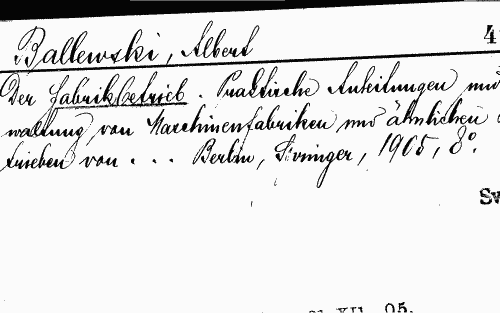 Ballewski, Albert 4
Der Fabrikbetrieb. Praktische Anleitungen
waltung von Maschinenfabriken und ähnlichen
trieben von . . . Berlin, Springer, 1905, 8°.
Sv
XII. 05.